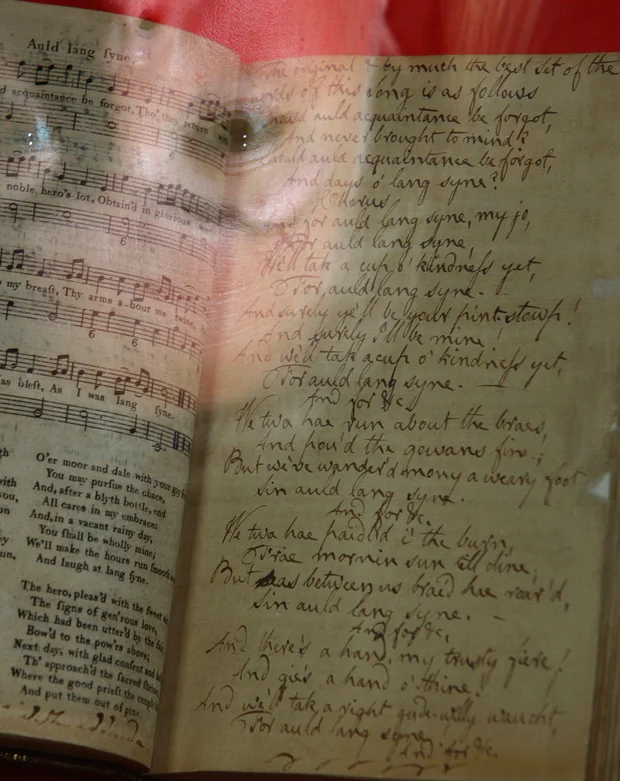 Auld lang syne.
d acquaintance be forgot, Tho' they return
noble hero's lot, Obtain'd in glorious
my breast, Thy arms a-bout me twine,
as blest, As I was lang syne.
O'er moor and dale with your
You may pursue the chace,
And, after a blyth bottle, end
All cares in my embrace:
And, in a vacant rainy day,
You shall be wholly mine;
We'll make the hours run smooth
And laugh at lang syne.
The hero, pleas'd with the sweet
The signs of gen'rous love,
Which had been utter'd by the fair
Bow'd to the pow'rs above;
Next day, with glad consent and
Th' approach'd the sacred
Where the good priest the couple
And put them out of pine.
The original & by much the best set of the
words of this song is as follows
auld acquaintance be forgot,
And never brought to mind?
auld acquaintance be forgot,
And days o' lang syne?
Chorus
And for auld lang syne, my jo,
For auld lang syne,
We'll tak a cup o' kindness yet,
For auld lang syne. -
And surely ye'll be your pint-stowp!
And surely I'll be mine!
And we'll tak a cup o' kindness yet,
For auld lang syne. —
And for &c.
We twa hae run about the braes,
And pou'd the gowans fine;
But we've wander'd mony a weary foot
Sin auld lang syne.
And for &c.
We twa hae paidl'd i' the burn,
Frae mornin sun till dine;
But seas between us braid hae roar'd,
Sin auld lang syne. —
And for &c.
And there's a hand, my trusty fiere!
And gie's a hand o' thine!
And we'll tak a right gude-willy waught,
For auld lang syne
And for &c.